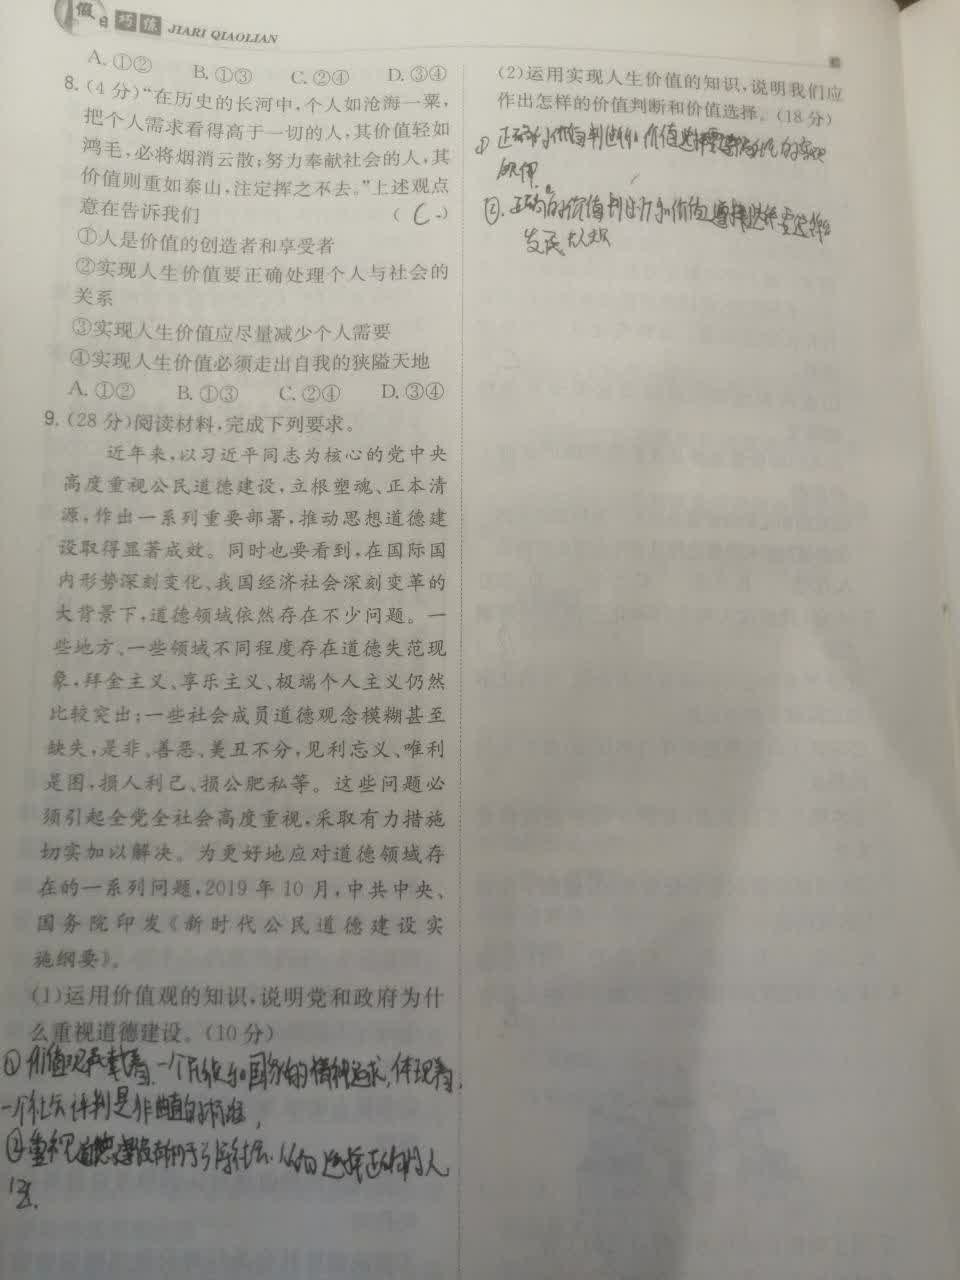 假日巧练 JIARI QIAOLIAN
A. ①② B. ①③ C. ②④ D. ③④
8. (4分)“在历史的长河中,个人如沧海一粟,
把个人需求看得高于一切的人,其价值轻如
鸿毛,必将烟消云散;努力奉献社会的人,其
价值则重如泰山,注定挥之不去。”上述观点
意在告诉我们 ( C )
①人是价值的创造者和享受者
②实现人生价值要正确处理个人与社会的
关系
③实现人生价值应尽量减少个人需要
④实现人生价值必须走出自我的狭隘天地
A. ①② B. ①③ C. ②④ D. ③④
9. (28分)阅读材料,完成下列要求。
近年来,以习近平同志为核心的党中央
高度重视公民道德建设,立根塑魂、正本清
源,作出一系列重要部署,推动思想道德建
设取得显著成效。同时也要看到,在国际国
内形势深刻变化、我国经济社会深刻变革的
大背景下,道德领域依然存在不少问题。一
些地方、一些领域不同程度存在道德失范现
象,拜金主义、享乐主义、极端个人主义仍然
比较突出;一些社会成员道德观念模糊甚至
缺失,是非、善恶、美丑不分,见利忘义、唯利
是图,损人利己、损公肥私等。这些问题必
须引起全党全社会高度重视,采取有力措施
切实加以解决。为更好地应对道德领域存
在的一系列问题,2019年10月,中共中央、
国务院印发《新时代公民道德建设实
施纲要》。
(1)运用价值观的知识,说明党和政府为什
么重视道德建设。(10分)
①价值观承载着一个民族和国家的精神追求,体现着
一个社会评判是非曲直的标准,
②重视道德建设有利于引导社会 人们选择正确的人
生
(2)运用实现人生价值的知识,说明我们应
作出怎样的价值判断和价值选择。(18分)
①正确的价值判断和价值选择
规律。
②.正确的价值判断和价值选择
发民大众